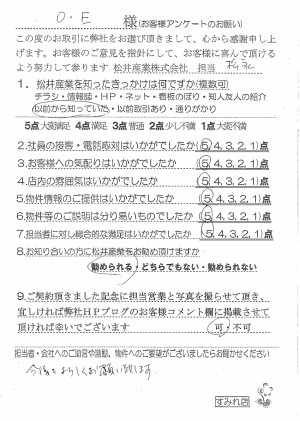 O.E 様(お客様アンケートのお願い)
この度のお取引に弊社をお選び頂きまして、心から感謝申し上
げます。お客様のご意見を指針にして、お客様に喜んで頂ける
よう努力して参ります 松井産業株式会社 担当
1．松井産業を知ったきっかけは何ですか(複数可)
チラシ・情報誌・HP・ネット・看板のぼり・知人友人の紹介
以前から知っていた・以前取引あり・通りがかり
5点大変満足 4点満足 3点普通 2点少し不満 1点大変不満
2.社員の接客・電話応対はいかがでしたか (5,4,3,2,1)点
3.お客様への気配りはいかがでしたか (5,4,3,2,1)点
4.店内の雰囲気はいかがでしたか (5,4,3,2,1)点
5.物件情報のご提供はいかがでしたか (5,4,3,2,1)点
6.物件等のご説明は分り易いものでしたか (5,4,3,2,1)点
7.担当者に対し総合的な満足はいかがでしたか (5,4,3,2,1)点
8.お知り合いの方に松井産業をお勧め頂けますか
勧められる・どちらでもない・勧められない
9.ご契約頂きました記念に担当営業と写真を撮らせて頂き、
宜しければ弊社HPブログのお客様コメント欄に掲載させて
頂ければ幸いでございます 可・不可
担当者・会社へのご助言や激励、物件へのご要望がございましたらお聞かせください
今後もよろしくお願い致します。
すみれ店